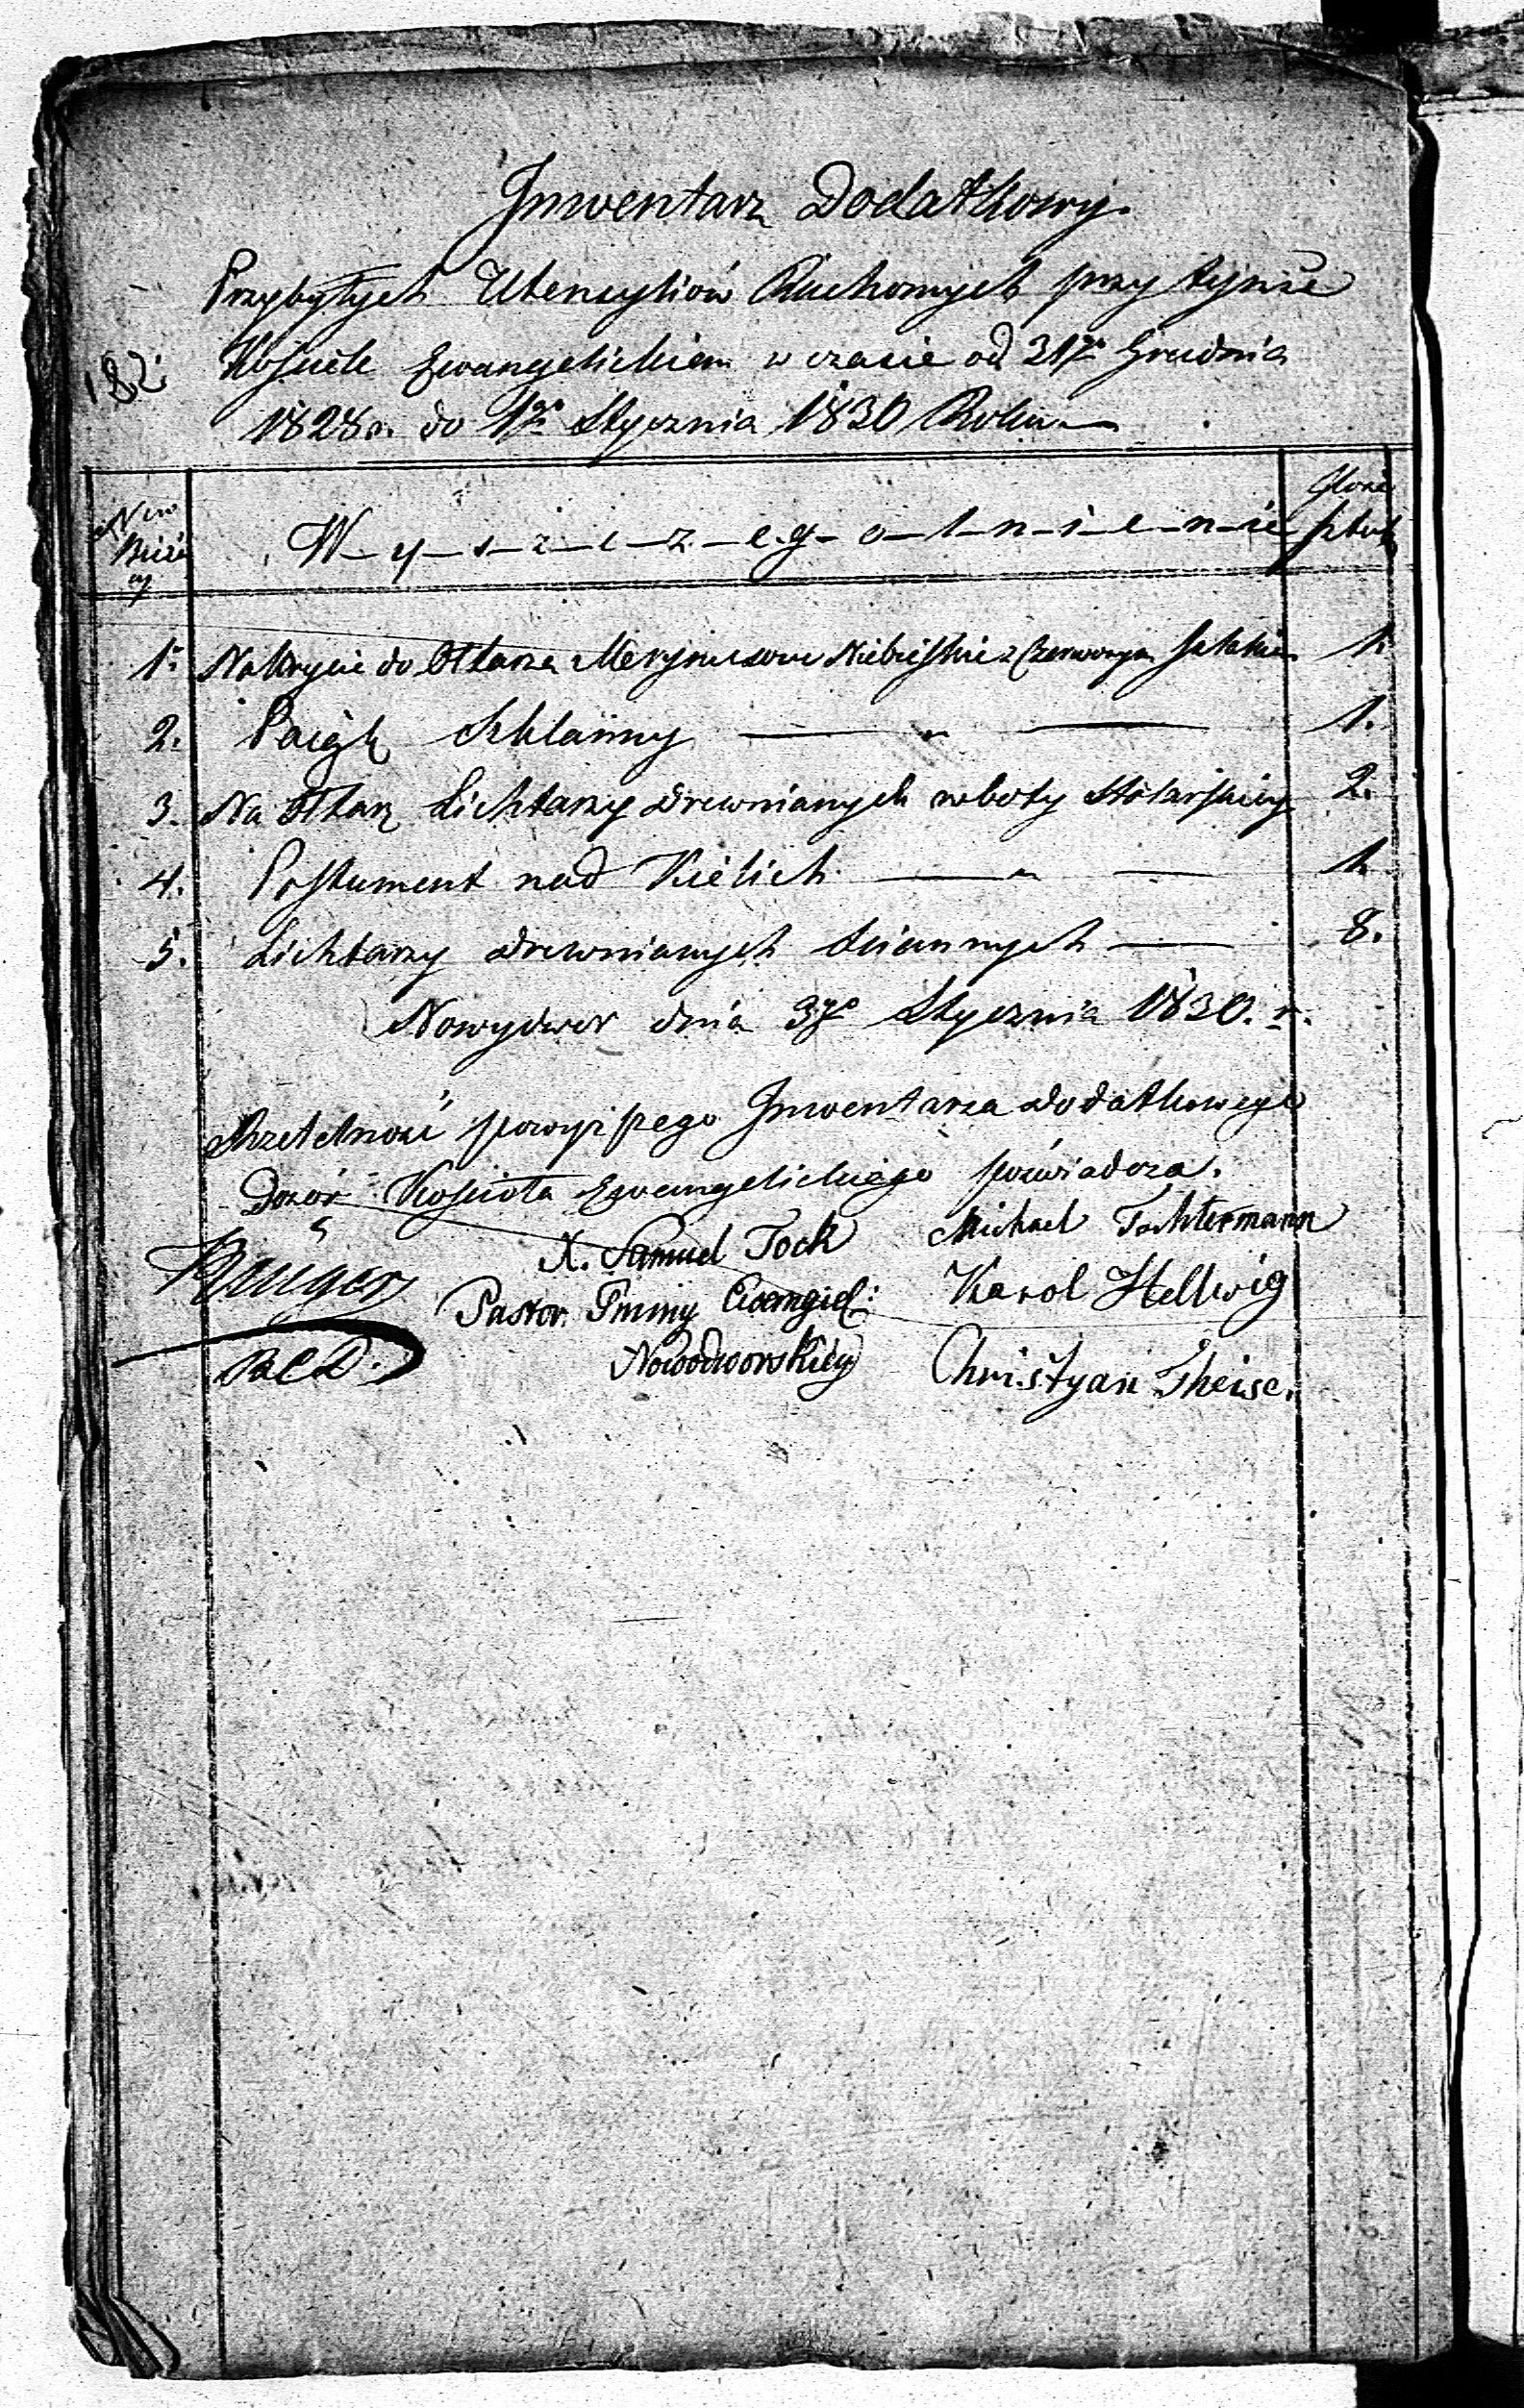 Inwentarz Dodatkowy.
Przybyłych Utensyliów Ruchomych przy tymże
182. Kościele Ewangelickiem w czasie od 31go Grudnia
1828 r. do 1go Stycznia 1830 Roku
Nro Bieżący
W-y-s-z-c-z-e-g-ó-l-n-i-e-n-ie
Ilość sztuk
1. Nakrycie do Ołtarza Merynusowe Niebieskie z Czerwonym 1.
2. Szklanny — " — 1.
3. Na Ołtarz Lichtarzy drewnianych roboty Stolarskiey 2.
4. Postument nad Kielich — " — 1.
5. Lichtarzy drewnianych ściennych — 8.
Nowydwór dnia 3go Stycznia 1830. r.
Rzetelność powyższego Inwentarza dodatkowego
Dozór Kościoła Ewangelickiego poświadcza.
X. Samuel Tock
Pastor Gminy Ewangiel:
Nowodworskiey
Michael Tochtermann
Karol Hellwig
Christyan Theise.